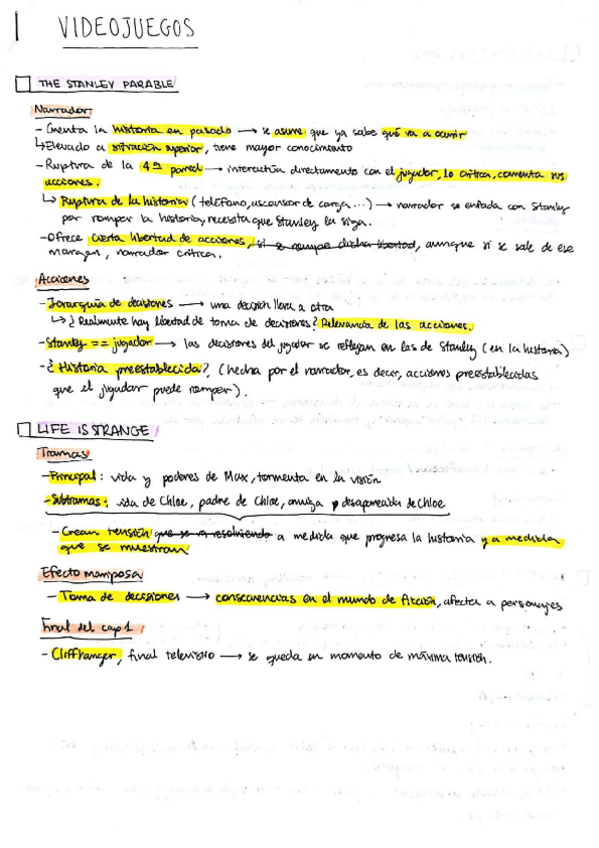 VIDEOJUEGOS
THE STANLEY PARABLE
Narrador
- Cuenta la historia en pasado → se asume que ya sabe qué va a ocurrir
↳ Elevado a situación superior, tiene mayor conocimiento
- Ruptura de la 4ª pared → interactúa directamente con el jugador, lo critica, comenta sus
acciones.
↳ Ruptura de la historia (teléfono, ascensor de carga...) → narrador se enfada con Stanley
por romper la historia, necesita que Stanley la siga.
- Ofrece cierta libertad de acciones, si se rompe dicha libertad, aunque si se sale de ese
margen, narrador critica.
Acciones
- Jerarquía de decisiones → una decisión lleva a otra
↳ ¿Realmente hay libertad de toma de decisiones? Relevancia de las acciones.
- Stanley == jugador → las decisiones del jugador se reflejan en las de Stanley (en la historia)
- ¿Historia preestablecida? (hecha por el narrador, es decir, acciones preestablecidas
que el jugador puede romper).
LIFE IS STRANGE
Tramas
- Principal: vida y poderes de Max, tormenta en la visión
- Subtramas: vida de Chloe, padre de Chloe, amiga desaparecida de Chloe
- Crean tensión que se va resolviendo a medida que progresa la historia y a medida
que se muestran
Efecto mariposa
- Toma de decisiones → consecuencias en el mundo de ficción, afecta a personajes
Final del cap 1
- Cliffhanger, final televisivo → se queda en momento de máxima tensión.